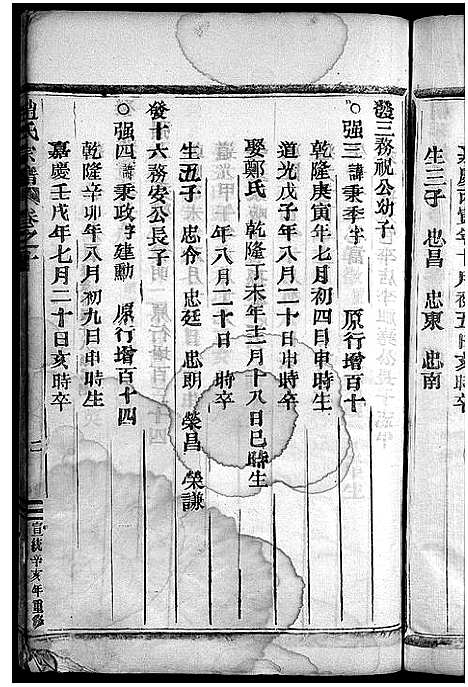 嘉慶丙寅年十月初五日亥時卒
生三子 忠昌 忠東 忠南
發三務祝公幼子
○强三諱秉季字 原行增百十
乾隆庚寅年七月初四日申時生
道光戊子年八月二十日申時卒
娶鄭氏 乾隆丁未年十二月十八日巳時生
年八月二十日 時卒
生五子 忠令 忠廷 忠朗 榮昌 榮謙
發十六務安公長子
○强四諱秉政字建勳 原行增百十四
乾隆辛卯年八月初九日申時生
嘉慶壬戌年七月二十日亥時卒
趙氏宗譜 卷之
二
宣統辛亥年重修